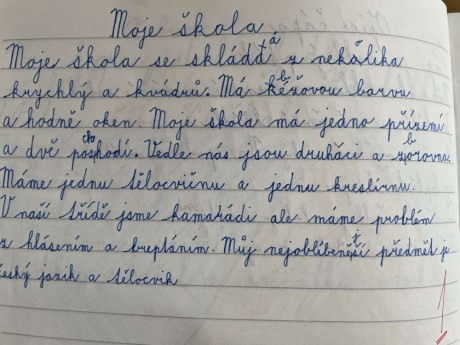 Moje škola
Moje škola se skládá z nekolika
krychlý a kvádrů. Má béžovou barvu
a hodně oken. Moje škola má jedno přízemí
a dvě poschodí. Vedle nás jsou druháci a sborovna.
Máme jednu tělocvičnu a jednu kreslírnu.
V naší třídě jsme kamarádi ale máme problém
z hlásením a breptáním. Můj nejoblíbenější předmět je
český jazik a tělocvik